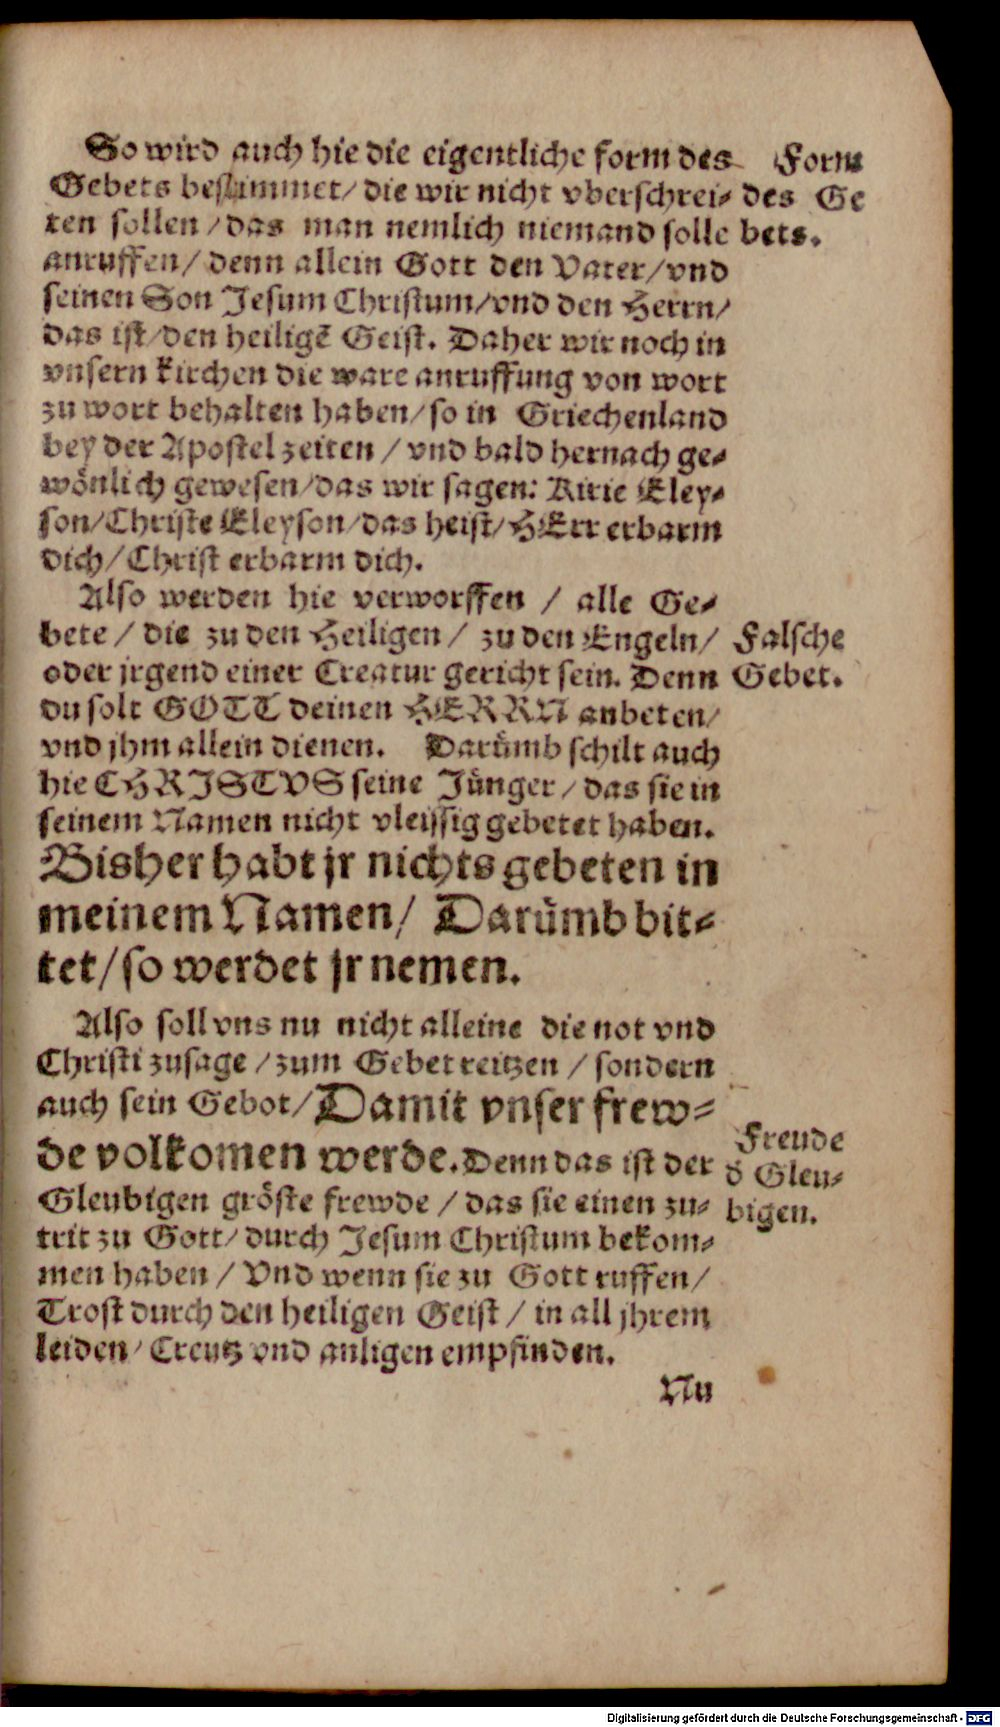 So wird auch hie die eigentliche form des
Gebets bestimmet/ die wir nicht vberschrei-
ten sollen / das man nemlich niemand solle
anruffen/ denn allein Gott den Vater/ vnd
seinen Son Jesum Christum/ vnd den Herrn/
das ist/ den heiligē Geist. Daher wir noch in
vnsern kirchen die ware anruffung von wort
zu wort behalten haben/ so in Griechenland
bey der Apostel zeiten / vnd bald hernach ge-
wönlich gewesen/ das wir sagen: Kirie Eley-
son/ Christe Eleyson/ das heist/ HErr erbarm
dich/ Christ erbarm dich.
Form
des Ge
bets.
Also werden hie verworffen / alle Ge-
bete / die zu den Heiligen / zu den Engeln/
oder jrgend einer Creatur gericht sein. Denn
du solt GOTT deinen HERRN anbeten/
vnd jhm allein dienen. Darümb schilt auch
hie CHRISTVS seine Jünger / das sie in
seinem Namen nicht vleissig gebetet haben.
Bisher habt jr nichts gebeten in
meinem Namen/ Darümb bit-
tet/ so werdet jr nemen.
Falsche
Gebet.
Also soll vns nu nicht alleine die not vnd
Christi zusage / zum Gebet reitzen / sondern
auch sein Gebot/ Damit vnser frew-
de volkomen werde. Denn das ist der
Gleubigen gröste frewde / das sie einen zu-
trit zu Gott/ durch Jesum Christum bekom-
men haben / Vnd wenn sie zu Gott ruffen/
Trost durch den heiligen Geist / in all jhrem
leiden/ Creutz vnd anligen empfinden.
Freude
d Gleu-
bigen.
Nu
Digitalisierung gefördert durch die Deutsche Forschungsgemeinschaft - DFG